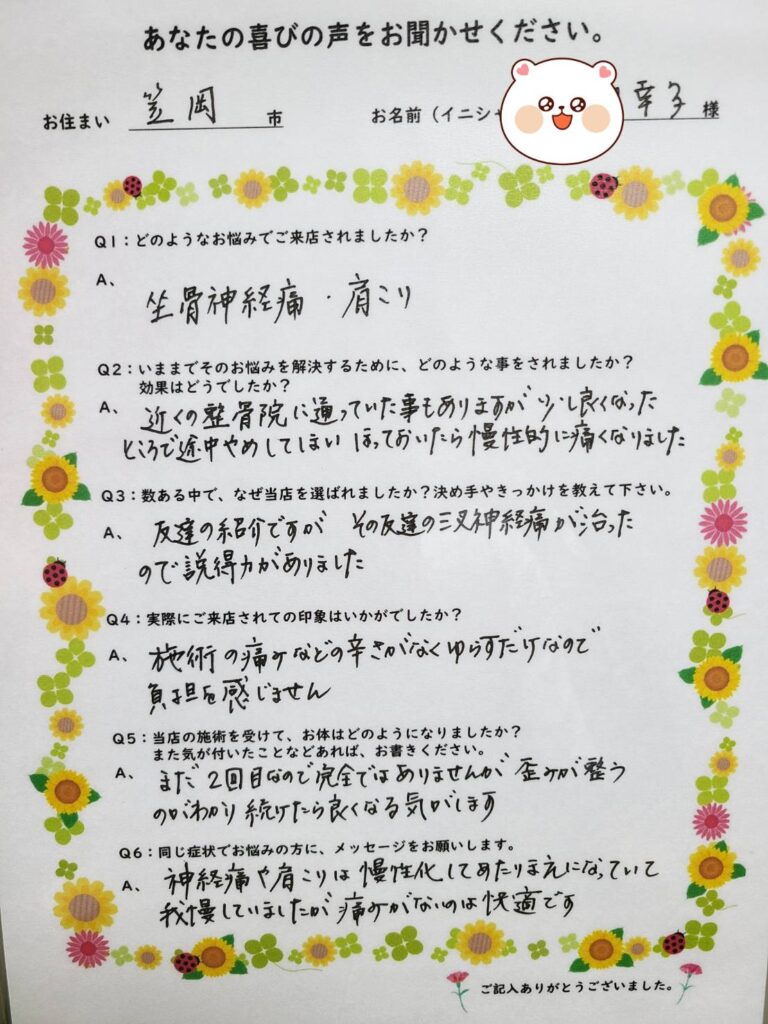 あなたの喜びの声をお聞かせください。
お住まい 笠岡 市 お名前（イニシャ 幸子 様
Q1：どのようなお悩みでご来店されましたか？
A、 坐骨神経痛・肩こり
Q2：いままでそのお悩みを解決するために、どのような事をされましたか？
効果はどうでしたか？
A、 近くの整骨院に通っていた事もありますが少し良くなった
ところで途中やめしてしまい ほっておいたら慢性的に痛くなりました
Q3：数ある中で、なぜ当店を選ばれましたか？決め手やきっかけを教えて下さい。
A、 友達の紹介ですが その友達の三叉神経痛が治った
ので説得力がありました
Q4：実際にご来店されての印象はいかがでしたか？
A、 施術の痛みなどの辛さがなくゆらすだけなので
負担を感じません
Q5：当店の施術を受けて、お体はどのようになりましたか？
また気が付いたことなどあれば、お書きください。
A、 まだ2回目なので完全ではありませんが 歪みが整う
のがわかり続けたら良くなる気がします
Q6：同じ症状でお悩みの方に、メッセージをお願いします。
A、 神経痛や肩こりは慢性化してあたりまえになっていて
我慢していましたが痛みがないのは快適です
ご記入ありがとうございました。